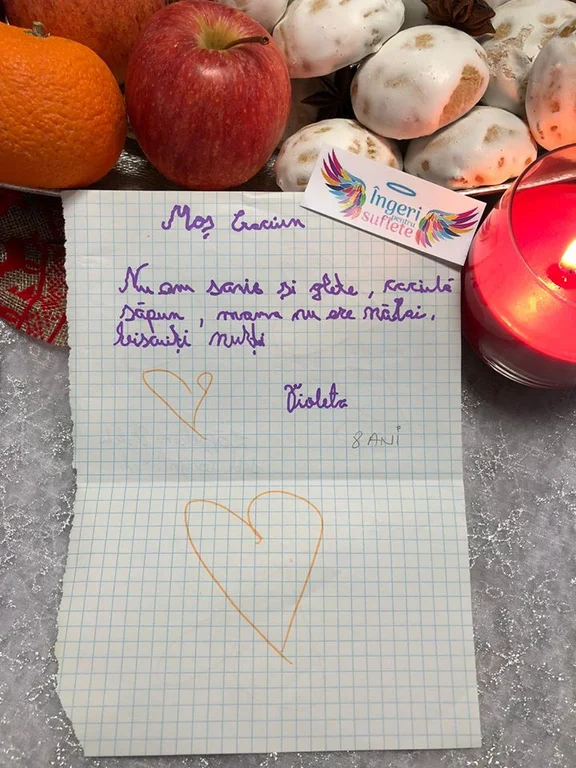 îngeri
pentru
suflete
Moș Craciun
Nu am sanie si ghete, caciulă
săpun, mama nu are mălai,
biscuiți mulți
Violeta
8 ANi